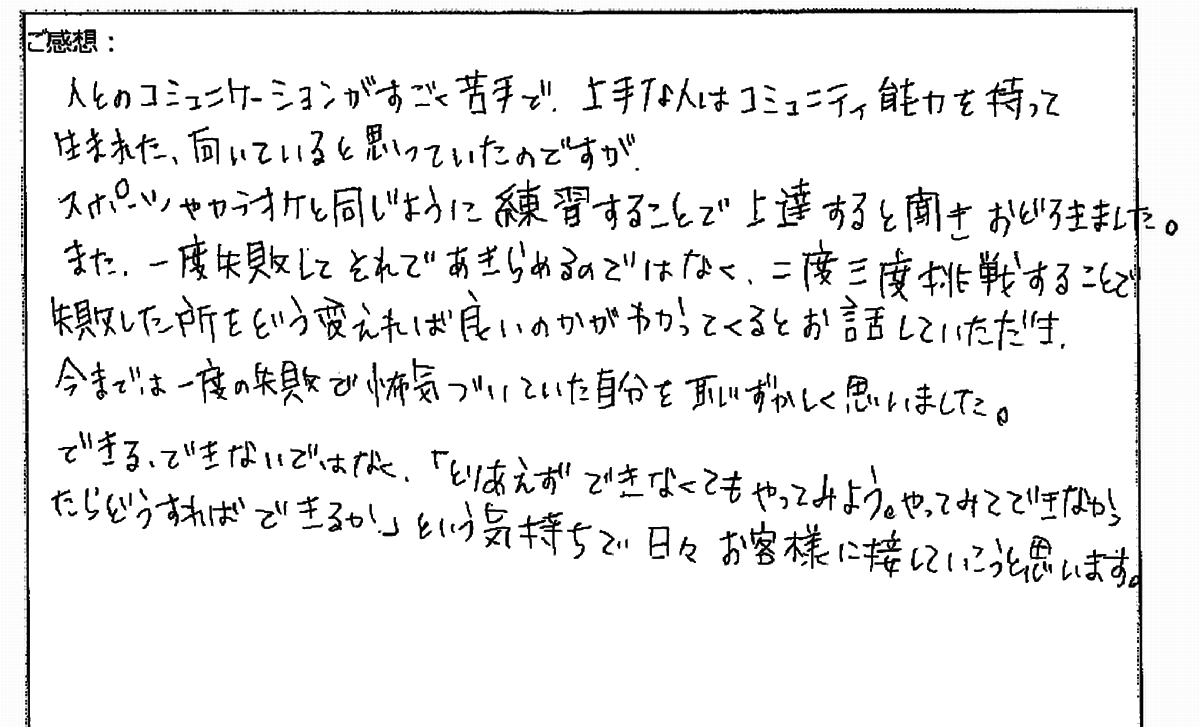 ご感想：
人とのコミュニケーションがすごく苦手で、上手な人はコミュニティ能力を持って
生まれた、向いていると思っていたのですが、
スポーツやカラオケと同じように練習することで上達すると聞きおどろきました。
また、一度失敗してそれであきらめるのではなく、二度三度挑戦することで
失敗した所をどう変えれば良いのかがわかってくるとお話していただき、
今までは一度の失敗で怖気づいていた自分を恥じずかしく思いました。
できる、できないではなく、「とりあえずできなくてもやってみよう。やってみてできなかっ
たらどうすればできるか。」という気持ちで日々お客様に接していこうと思います。